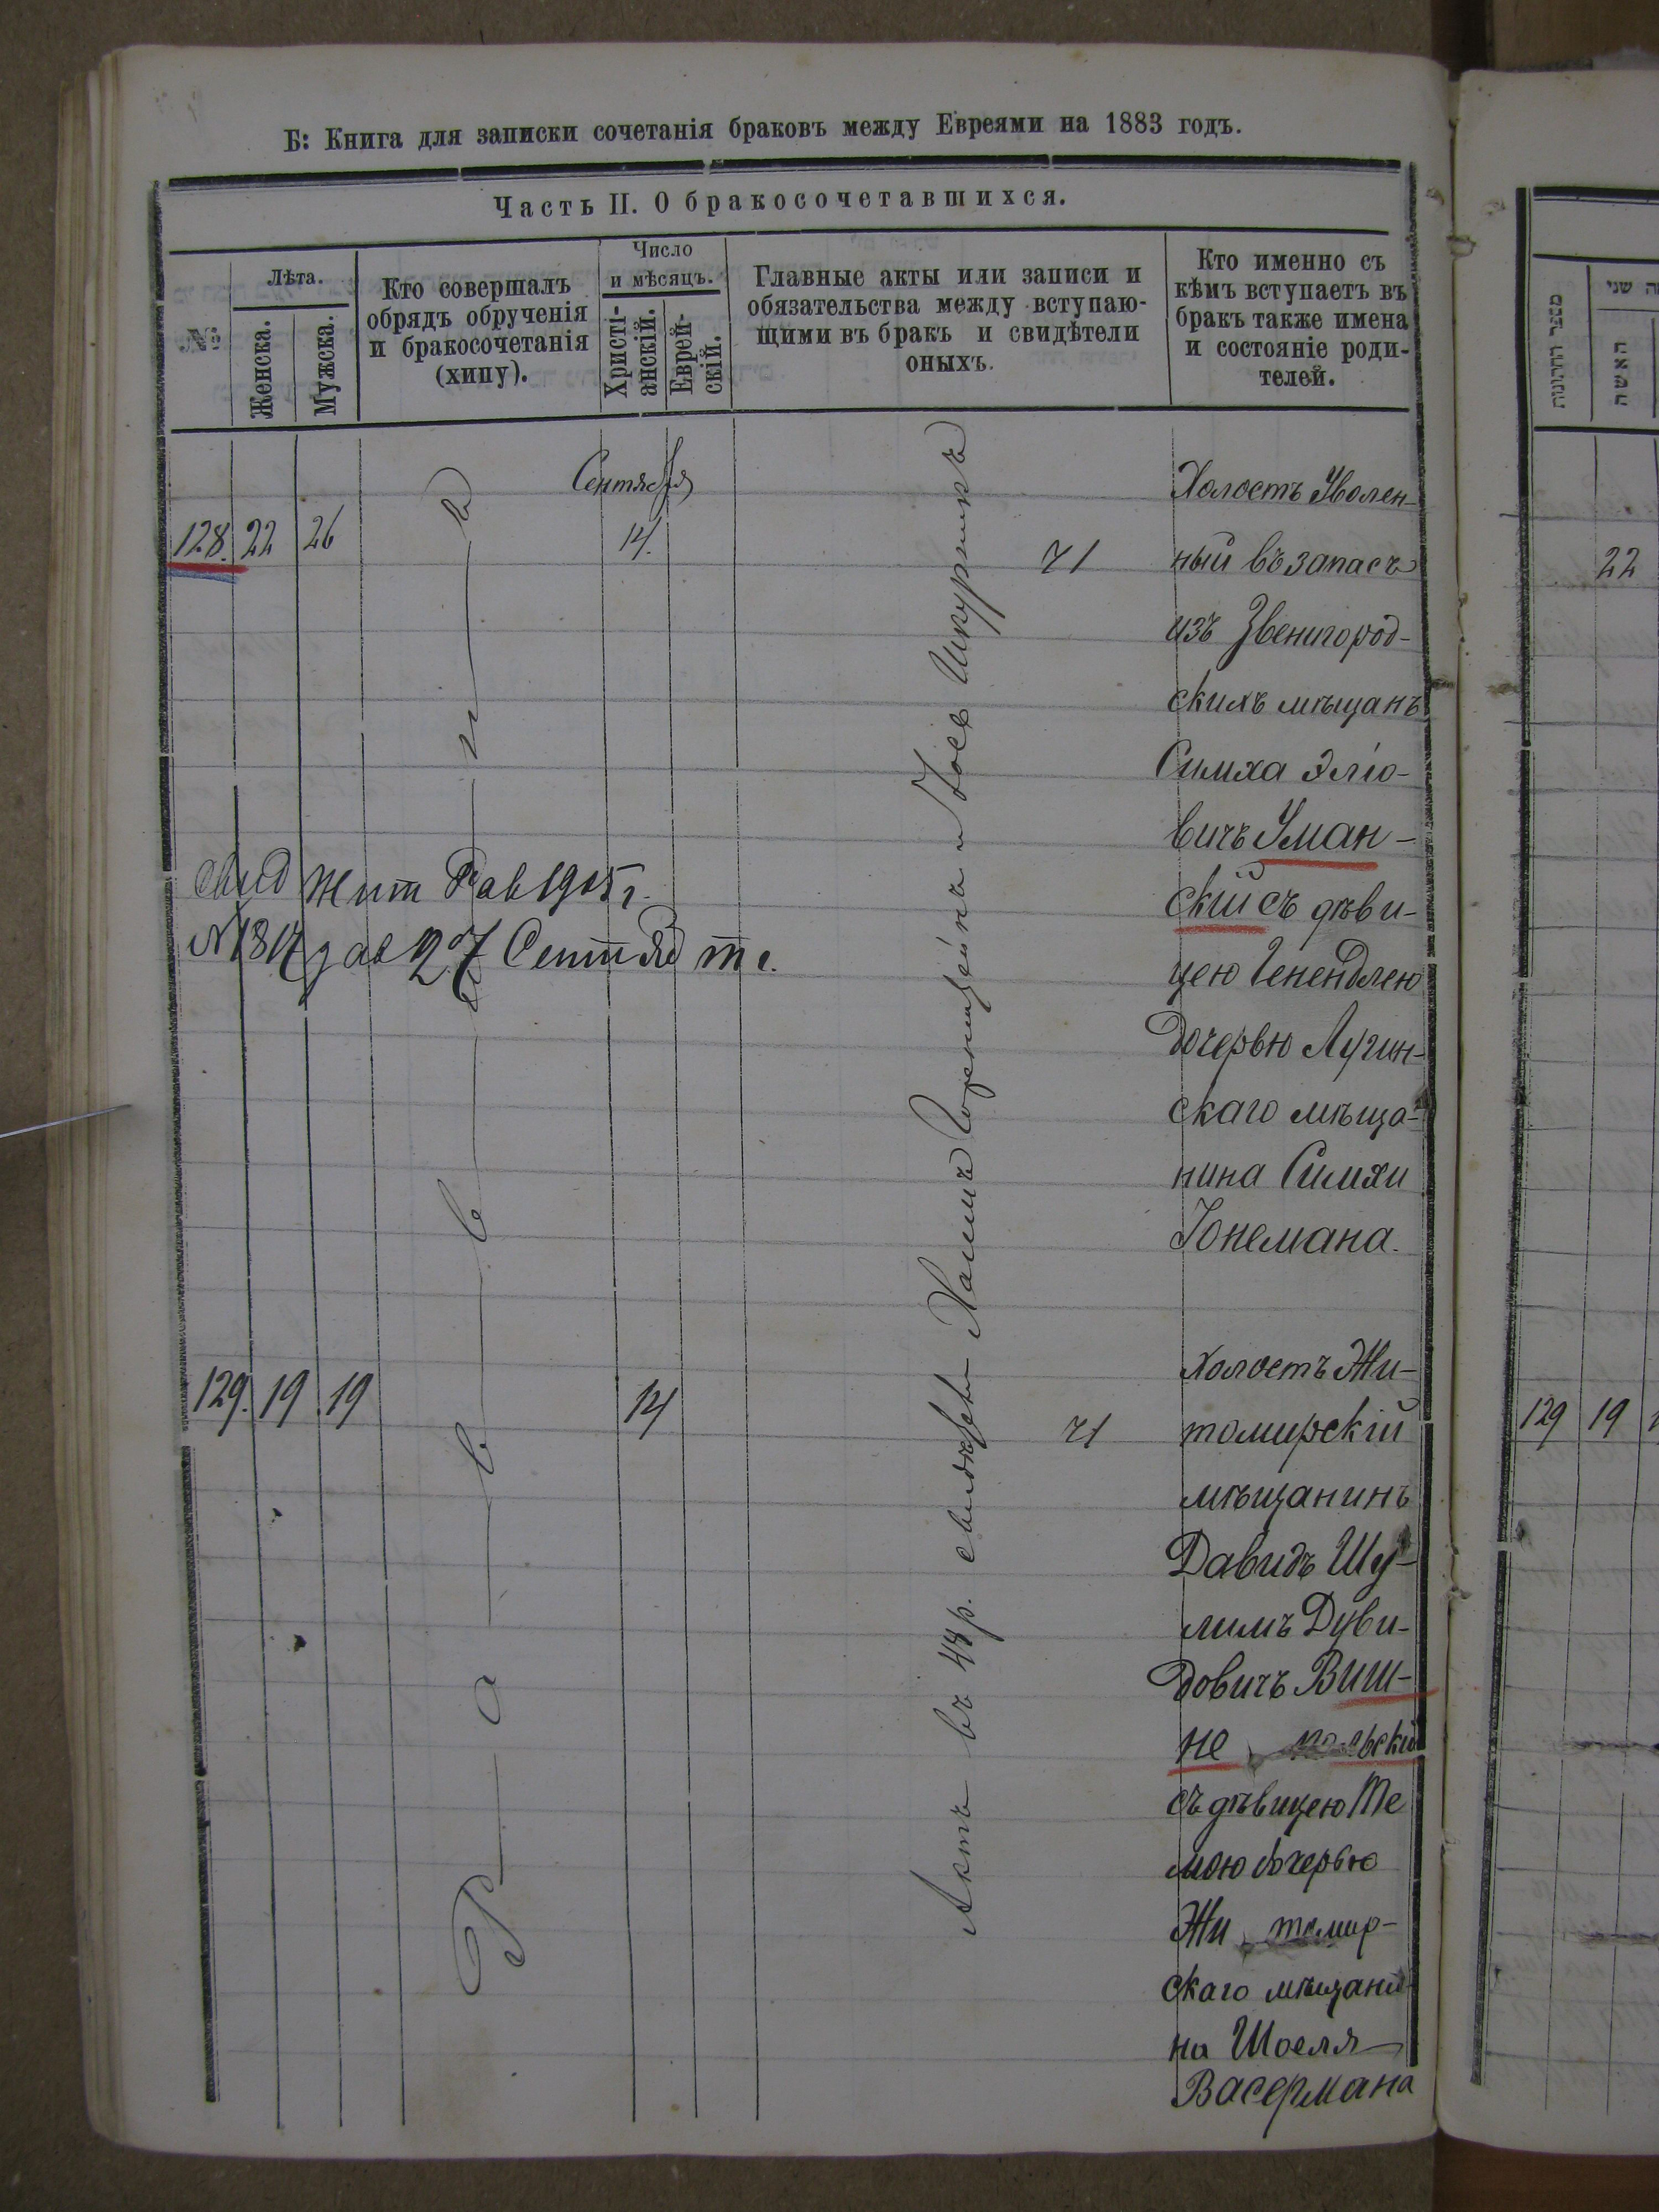 Б: Книга для записки сочетанія браковъ между Евреями на 1883 годъ.
Часть II. О бракосочетавшихся.
№
Лѣта.
Женска.
Мужска.
Кто совершалъ
обрядъ обрученія
и бракосочетанія
(хипу).
Число
и мѣсяцъ.
Христі-
анскій.
Еврей-
скій.
Главные акты или записи и
обязательства между вступаю-
щими въ бракъ и свидѣтели
оныхъ.
Кто именно съ
кѣмъ вступаетъ въ
бракъ также имена
и состояніе роди-
телей.
Сентября
128. 22 26
14.
Раввинъ
Актъ въ 48 р. свидѣтели Хаимъ и Іось
Холостъ Уволен-
ный въ запасъ
изъ Звенигород-
скихъ мѣщанъ
Симха Эліо-
вичъ Уман-
скій съ дѣви-
цею Генендлею
дочерью Лугин-
скаго мѣща-
нина Симхи
Юнемана.
Свид Жит Рав 1905 г.
27 Сентяб т г.
129. 19 19
14
Холостъ Жи-
томирскій
мѣщанинъ
Давидъ Шу-
лимъ Дуви-
довичъ Виш-
не польскій
съ дѣвицею Те
мою дочерью
Жи томир-
скаго мѣщани-
на Шоеля
Васермана
מספר החתונות
שני
האשה
22
129 19